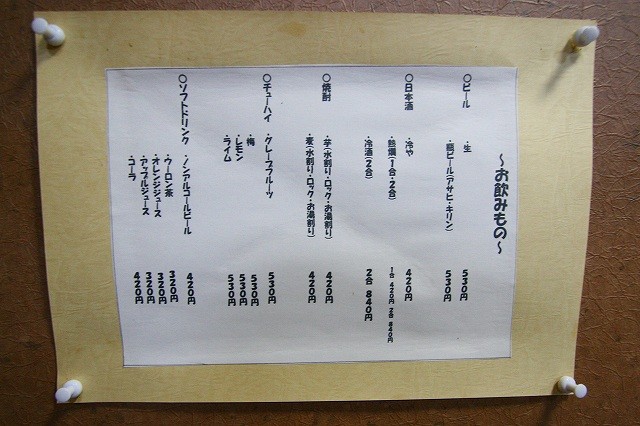 ～お飲みもの～
○ビール ・生 530円
・瓶ビール(アサヒ・キリン) 530円
○日本酒 ・冷や 420円
・熱燗(1合・2合) 1合 420円 2合 840円
・冷酒(2合) 2合 840円
○焼酎 ・芋(水割り・ロック・お湯割り) 420円
・麦(水割り・ロック・お湯割り) 420円
○チューハイ ・グレープフルーツ 530円
・梅 530円
・レモン 530円
・ライム 530円
○ソフトドリンク ・ノンアルコールビール 420円
・ウーロン茶 320円
・オレンジジュース 320円
・アップルジュース 320円
・コーラ 420円